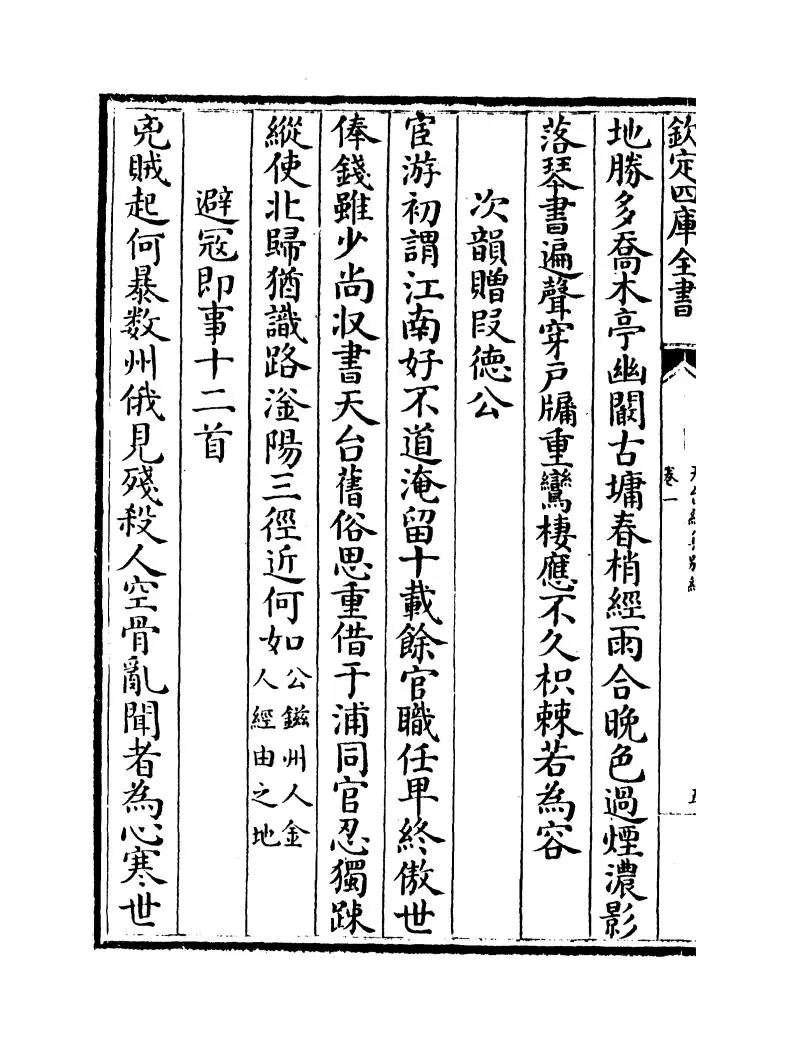 欽定四庫全書
卷一
地勝多喬木亭幽闞古墉春梢經雨合晚色過煙濃影
落琴書遍聲穿戶牖重鸞棲應不久枳棘若為容
次韻贈段德公
宦游初謂江南好不道淹留十載餘官職任甲終傲世
俸錢雖少尚收書天台舊俗思重借于浦同官忍獨踈
縱使北歸猶識路滏陽三徑近何如公鎡州人金
人經由之地
避冦即事十二首
兇賊起何暴数州俄見殘殺人空骨亂聞者為心寒世